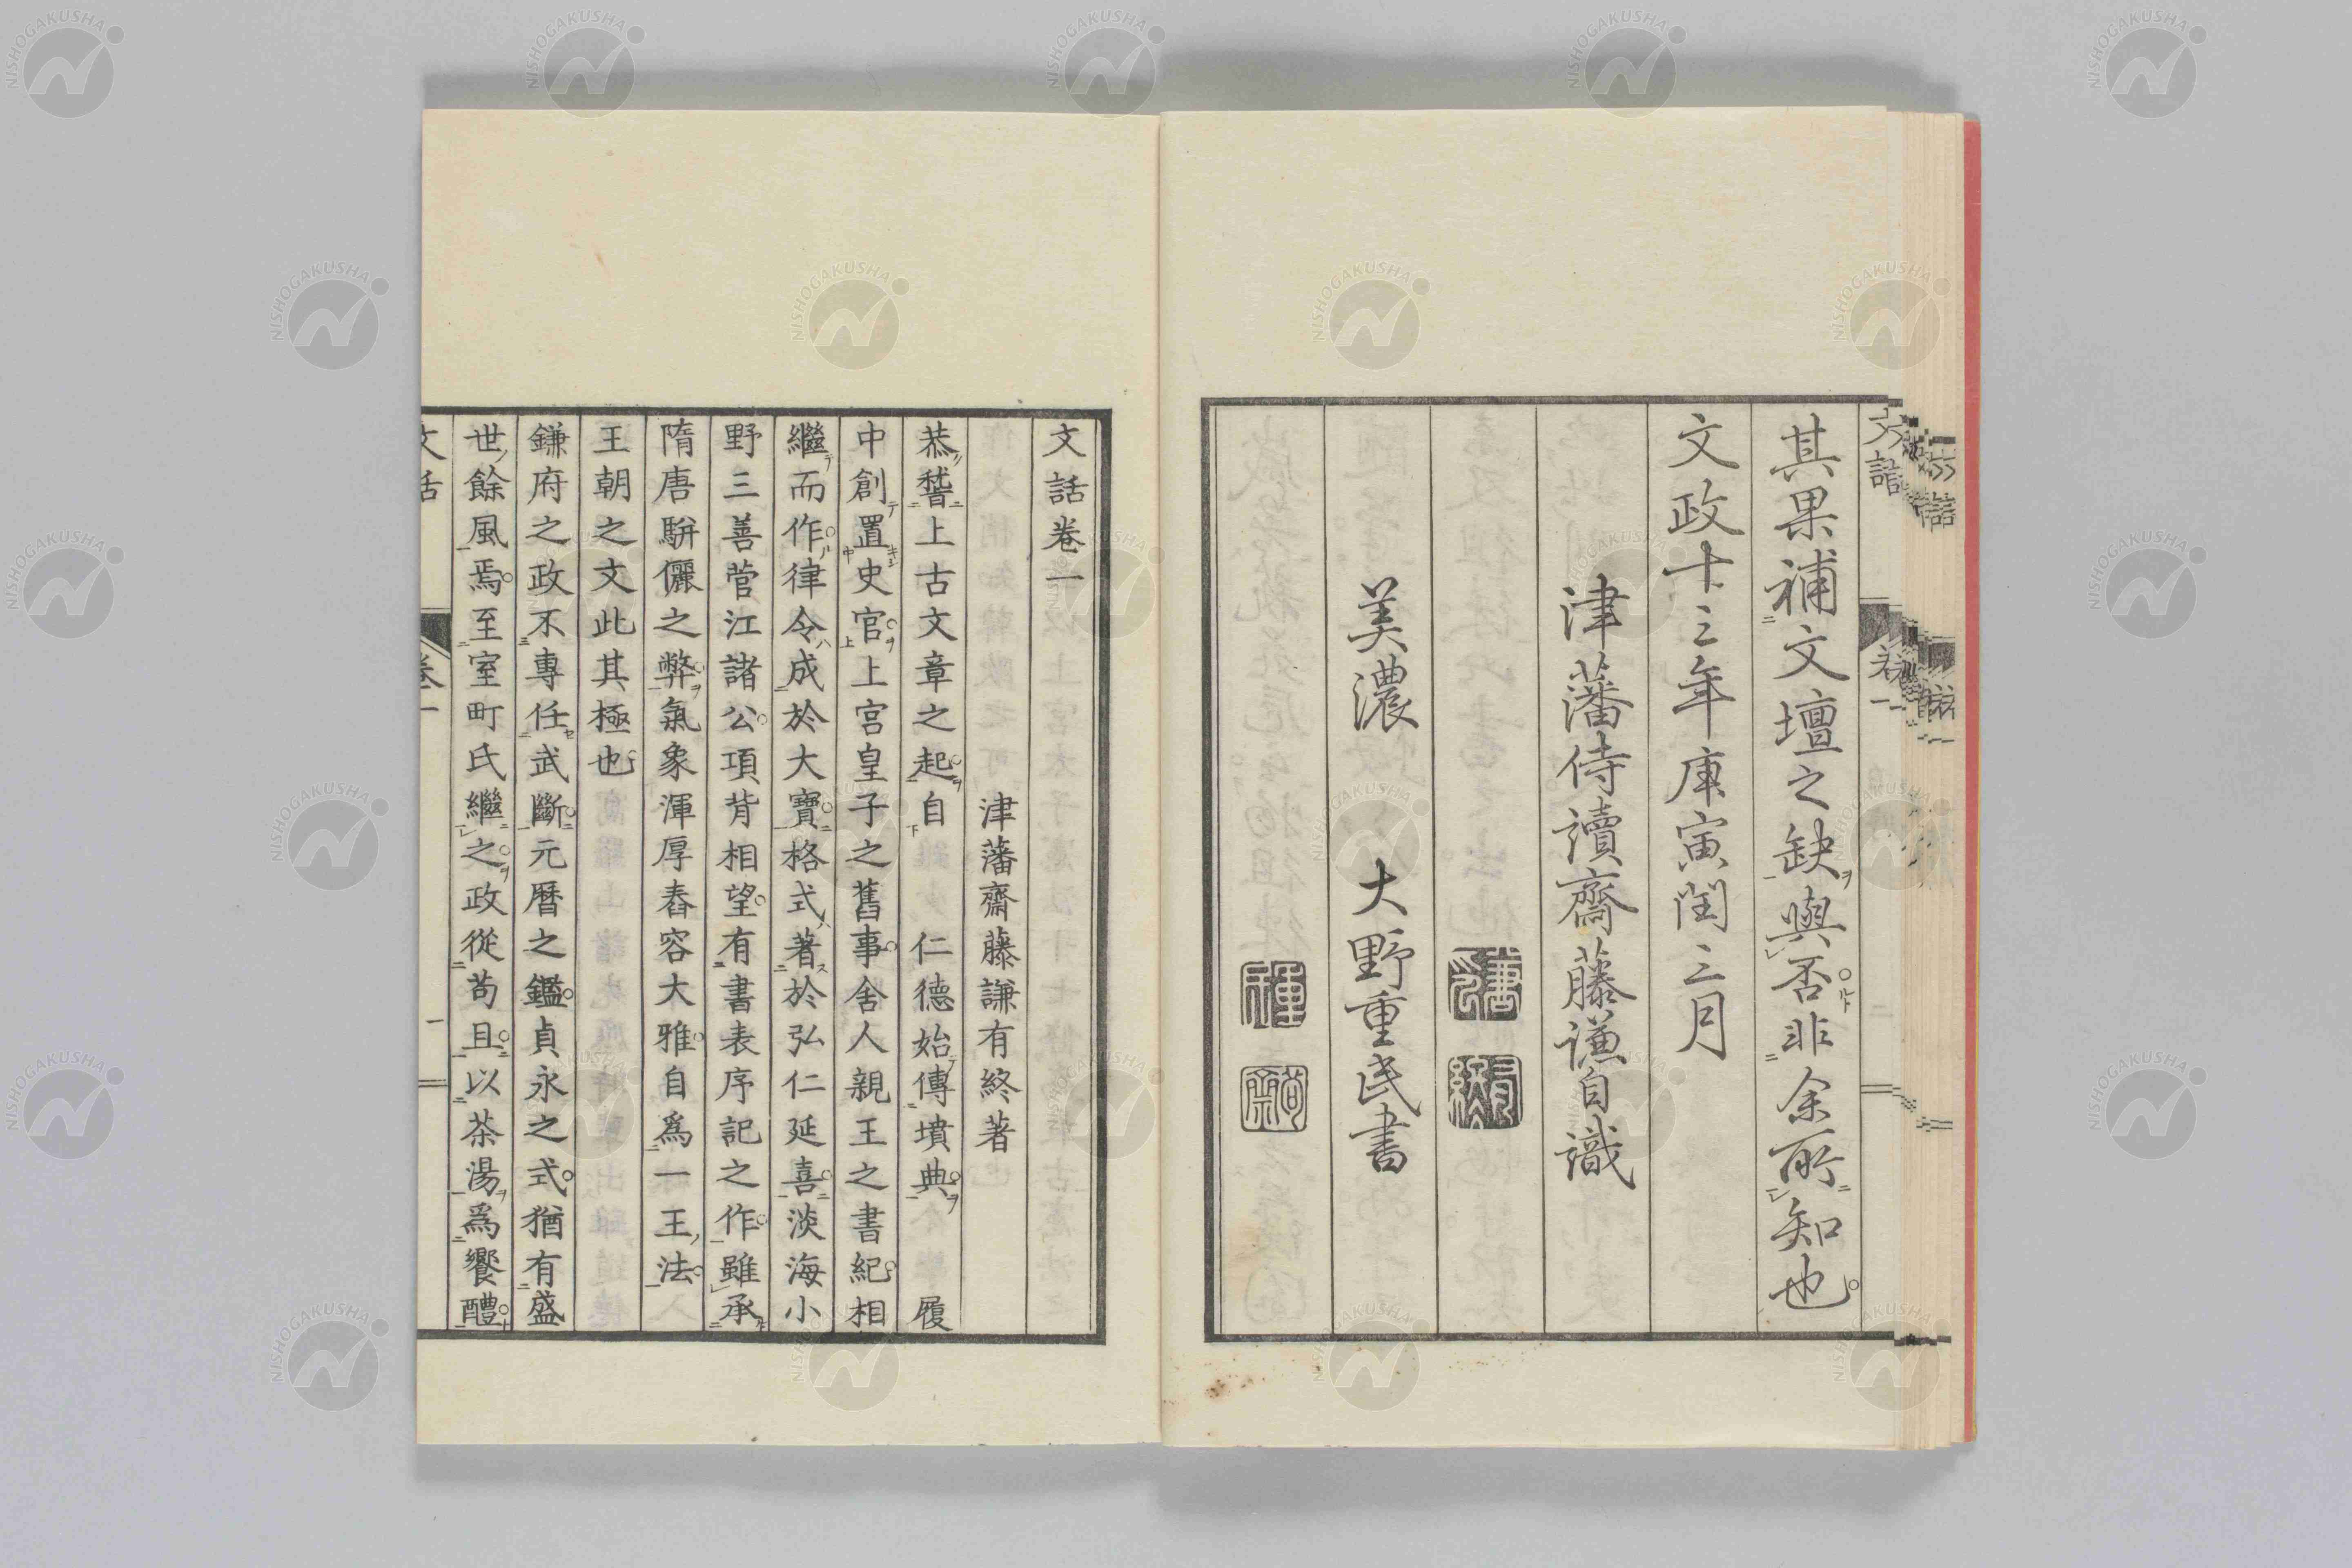 其果補文壇之缺與否非余所知也
文政十三年庚寅閏三月
津藩侍讀齋藤謙自識
美濃 大野重民書
文話卷一
津藩齋藤謙有終著
恭稽上古文章之起自 仁德始傳墳典 履
中創置史官上宮皇子之舊事舍人親王之書紀相
繼而作律令成於大寶格式著於弘仁延喜淡海小
野三善菅江諸公項背相望有書表序記之作雖承
隋唐駢儷之弊氣象渾厚舂容大雅自爲一王法
王朝之文此其極也
鎌府之政不專任武斷元曆之鑑貞永之式猶有盛
世餘風焉至室町氏繼之政從苟且以茶湯爲饗醴
文話 卷一 一
NISHOGAKUSHA